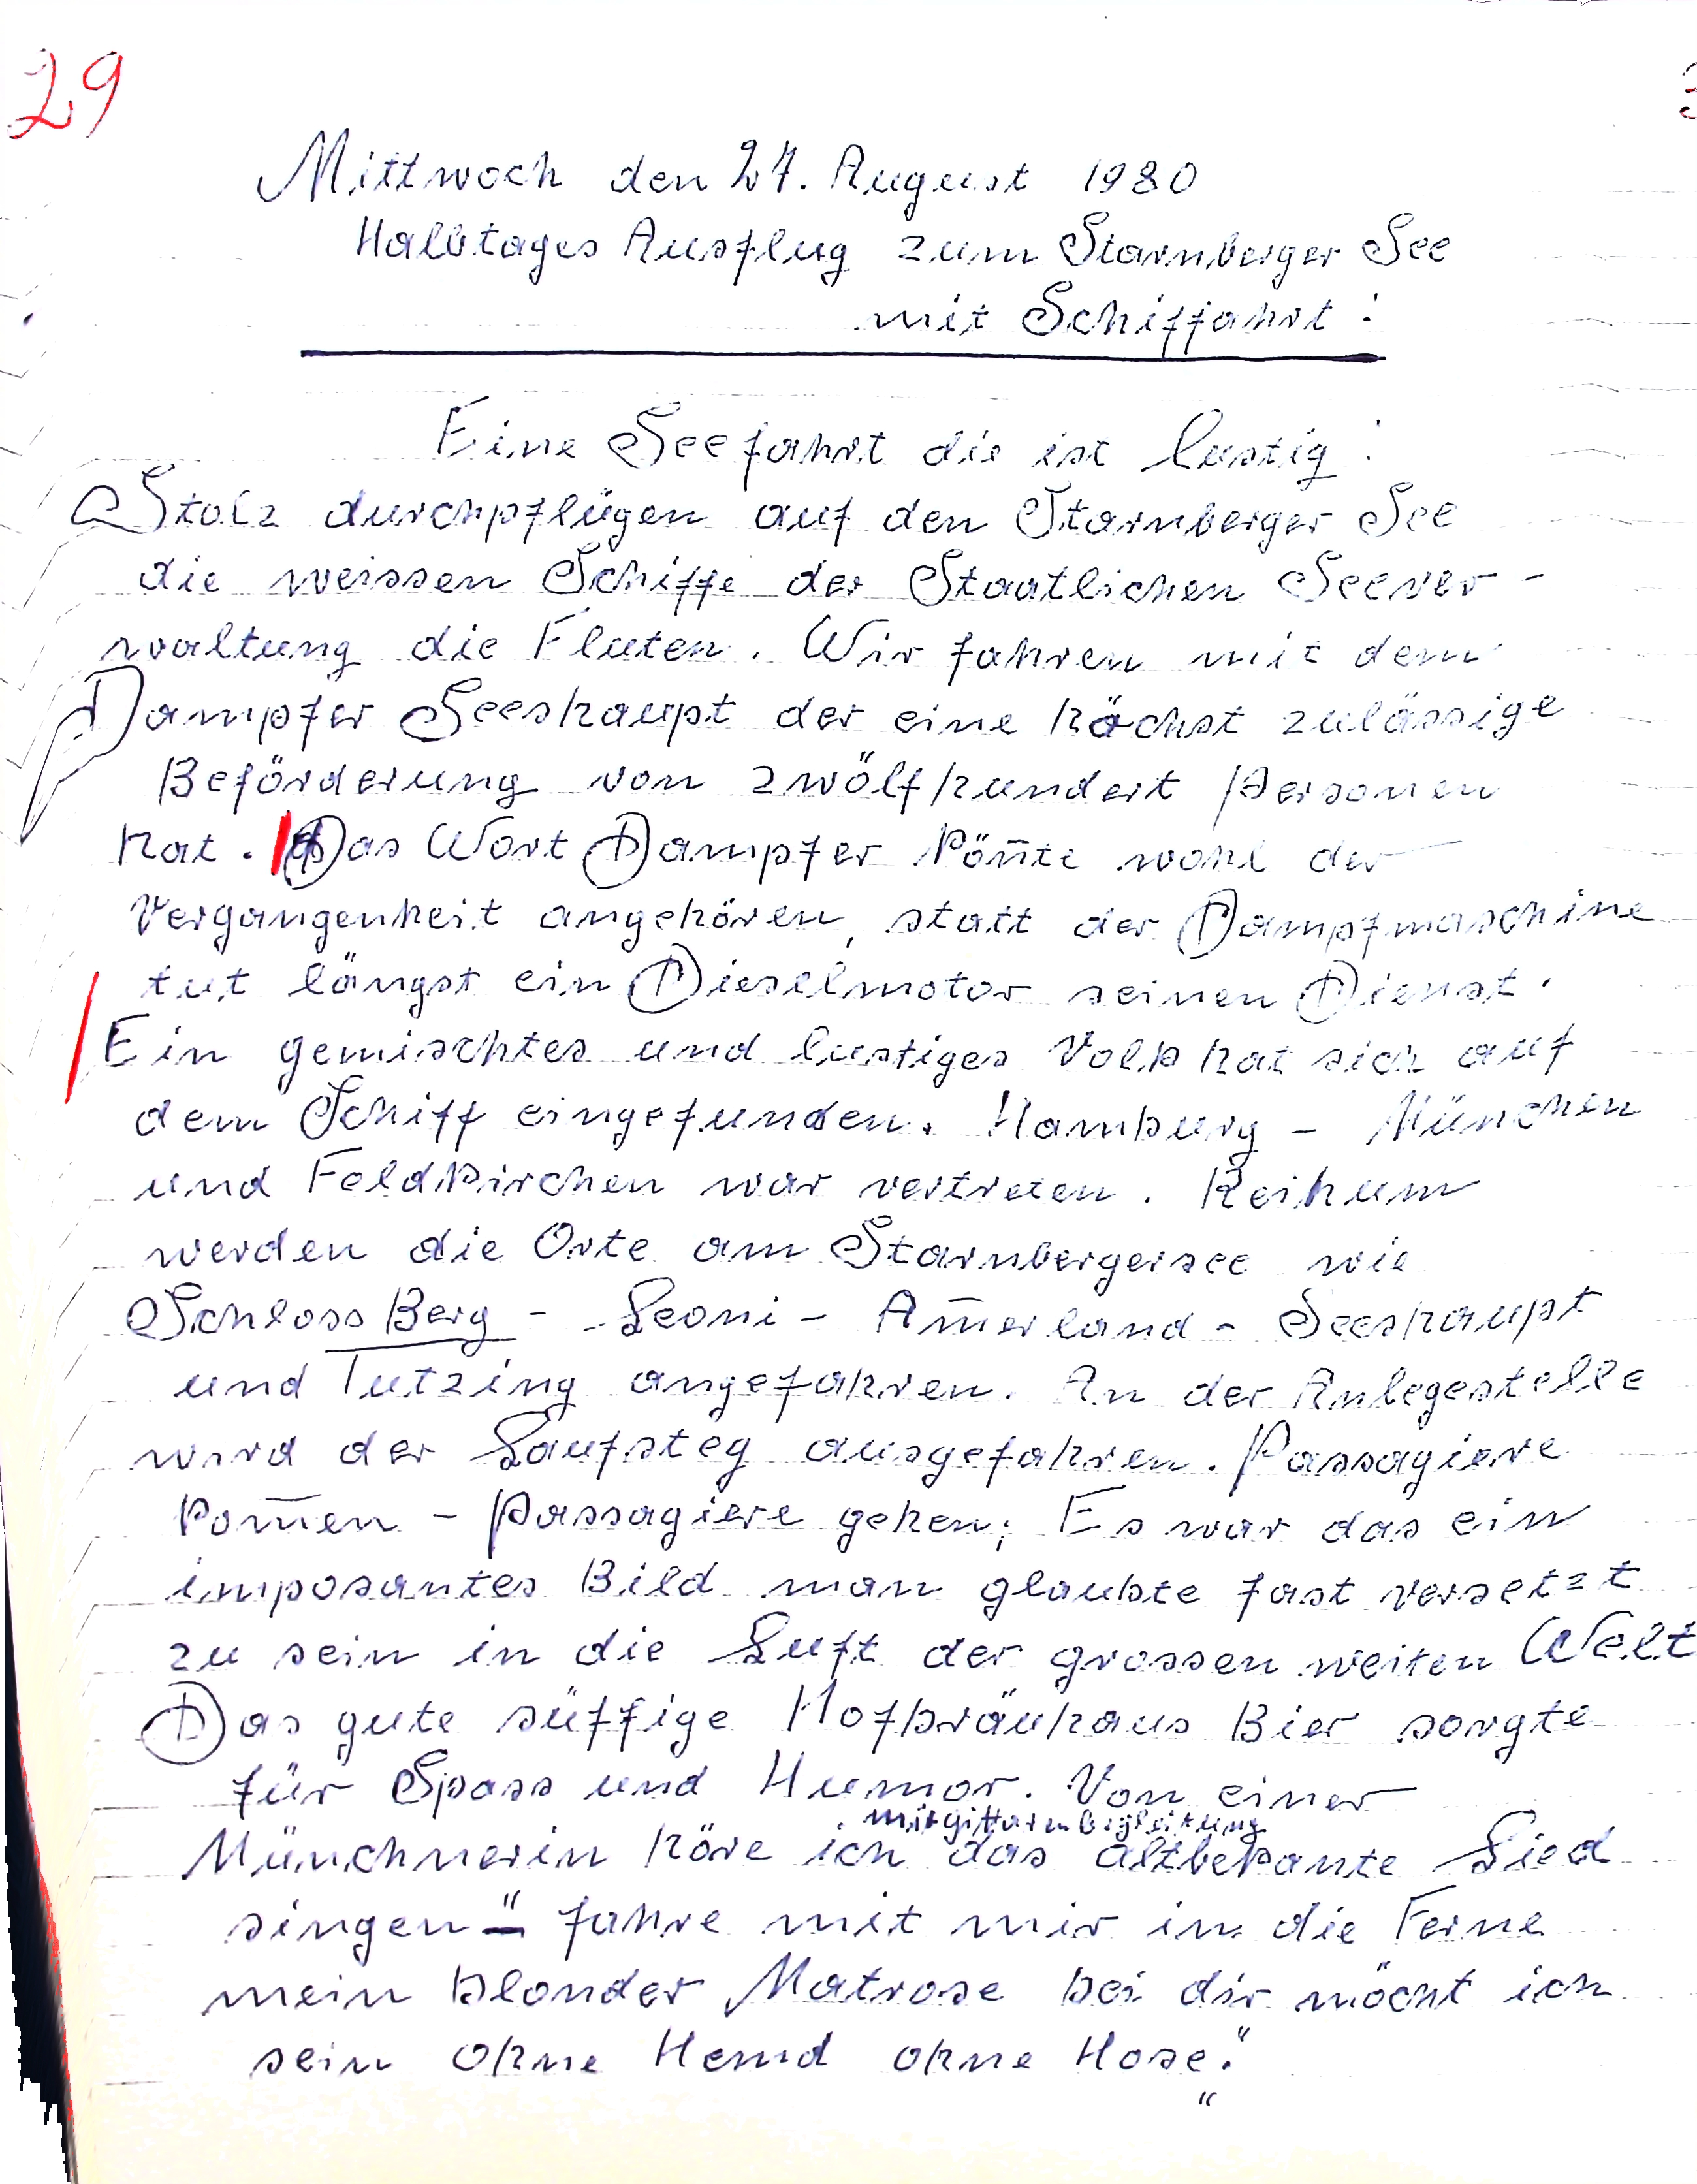 29
Mittwoch den 27. August 1980
Halbtages Ausflug zum Starnberger See
mit Schiffahrt:
Eine Seefahrt die ist lustig:
Stolz durchpflügen auf den Starnberger See
die weissen Schiffe der Staatlichen Seever-
waltung die Fluten. Wir fahren mit dem
Dampfer Seeshaupt der eine höchst zulässige
Beförderung von zwölfhundert Personen
hat. Das Wort Dampfer kön̄te wohl der
Vergangenheit angehören, statt der Dampfmaschine
tut längst ein Dieselmotor seinen Dienst.
Ein gemischtes und lustiges Volk hat sich auf
dem Schiff eingefunden. Hamburg - München
und Feldkirchen war vertreten. Reihum
werden die Orte am Starnbergersee wie
Schloss Berg - Leoni - Am̄erland - Seeshaupt
und Tutzing angefahren. An der Anlegestelle
wird der Laufsteg ausgefahren. Passagiere
kom̄en - Passagiere gehen; Es war das ein
imposantes Bild man glaubte fast versetzt
zu sein in die Luft der grossen weiten Welt
Das gute süffige Hofbräuhaus Bier sorgte
für Spass und Humor. Von einer
mit Gittarenbegleitung
Münchnerin höre ich das altbekante Lied
singen - " fahre mit mir in die Ferne
mein blonder Matrose bei dir möcht ich
sein ohne Hemd ohne Hose."
"